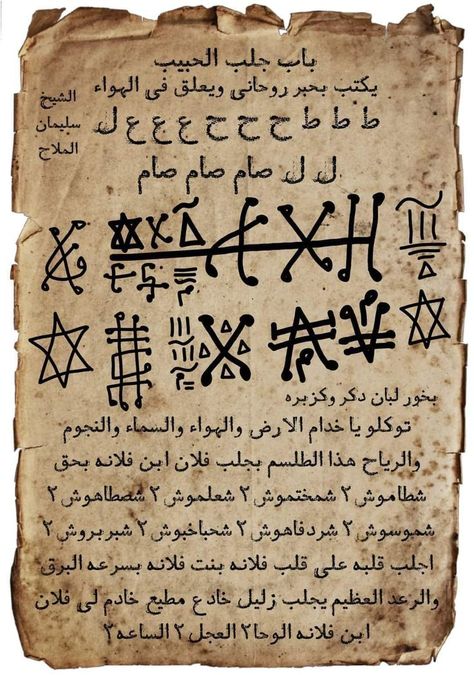 باب جلب الحبيب
يكتب بحبر روحانى ويعلق فى الهواء
الشيخ
سليمان
الملاح
ط ط ط ح ح ح ع ع ع ل
ل ل صام صام صام
بخور لبان دكر وكزبره
توكلو يا خدام الارض والهواء والسماء والنجوم
والرياح هذا الطلسم بجلب فلان ابن فلانه بحق
شطاموش ٢ شمختموش ٢ شعلموش ٢ شصطاهوش ٢
شموسوش ٢ شردفاهوش ٢ شحباخبوش ٢ شبربروش ٢
اجلب قلبه على قلب فلانه بنت فلانه بسرعه البرق
والرعد العظيم يجلب زليل خادع مطيع خادم لى فلان
ابن فلانه الوحا٢ العجل ٢ الساعه ٢